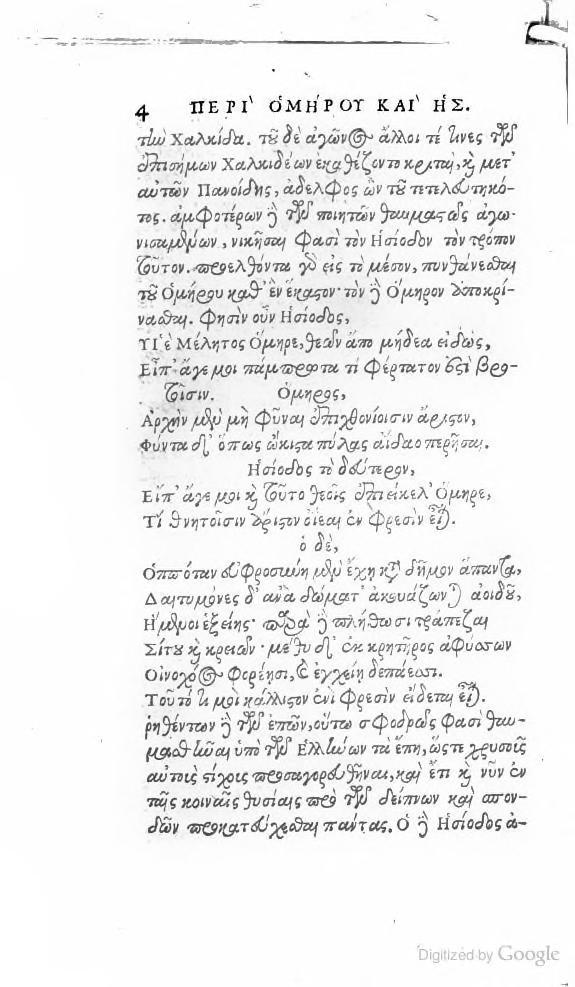 4 ΠΕΡΙ` ὉΜΗ´ΡΟΥ ΚΑΙ` ἩΣ.
τὴν Χαλκίδα. τοῦ δὲ ἀγῶνος ἄλλοι τέ τινες τῶν
ἐπισήμων Χαλκιδέων ἐκαθέζοντο κριταὶ, καὶ μετ'
αὐτῶν Πανοίδης, ἀδελφὸς ὢν τοῦ τετελευτηκό-
τος. ἀμφοτέρων δὲ τῶν ποιητῶν θαυμαστῶς ἀγω-
νισαμένων, νικῆσαι φασὶ τὸν Ἡσίοδον τὸν τρόπον
τοῦτον. προελθόντα γὰρ εἰς τὸ μέσον, πυνθάνεσθαι
τοῦ Ὁμήρου καθ' ἓν ἕκαστον· τὸν δὲ Ὅμηρον ἀποκρί-
νασθαι. φησὶν οὖν Ἡσίοδος,
ΥΙ῾ὲ Μέλητος Ὅμηρε, θεῶν ἄπο μήδεα εἰδὼς,
Εἴπ' ἄγε μοι πάμπρωτα τί φέρτατον ἐστὶ βρο-
τοῖσιν. Ὅμηρος,
Ἀρχὴν μὲν μὴ φῦναι ἐπιχθονίοισιν ἄριστον,
Φύντα δ' ὅπως ὤκιστα πύλας ἀΐδαο περῆσαι.
Ἡσίοδος τὸ δεύτερον,
Εἴπ' ἄγε μοι καὶ τοῦτο θεοῖς ἐπιείκελ' Ὅμηρε,
Τί θνητοῖσιν ἄριστον οἴεαι ἐν φρεσὶν εἶναι.
ὁ δὲ,
Ὁππόταν εὐφροσύνη μὲν ἔχῃ κατὰ δῆμον ἅπαντα,
Δαιτυμόνες δ' ἀνὰ δώματ' ἀκουάζωνται ἀοιδοῦ,
Ἥμενοι ἑξείης· παρὰ δὲ πλήθωσι τράπεζαι
Σίτου καὶ κρειῶν· μέθυ δ' ἐκ κρητῆρος ἀφύσσων
Οἰνοχόος φορέῃσι, καὶ ἐγχείῃ δεπάεσσι.
Τοῦτό τι μοὶ κάλλιστον ἐνὶ φρεσὶν εἴδεται εἶναι.
ῥηθέντων δὲ τῶν ἐπῶν, οὕτω σφοδρῶς φασὶ θαυ-
μασθῆναι ὑπὸ τῶν Ἑλλήνων τὰ ἔπη, ὥστε χρυσοῦς
αὐτοὺς στίχους προσαγορευθῆναι, καὶ ἔτι καὶ νῦν ἐν
ταῖς κοιναῖς θυσίαις πρὸ τῶν δείπνων καὶ σπον-
δῶν προκατεύχεσθαι πάντας. Ὁ δὲ Ἡσίοδος ἀ-
Digitized by Google